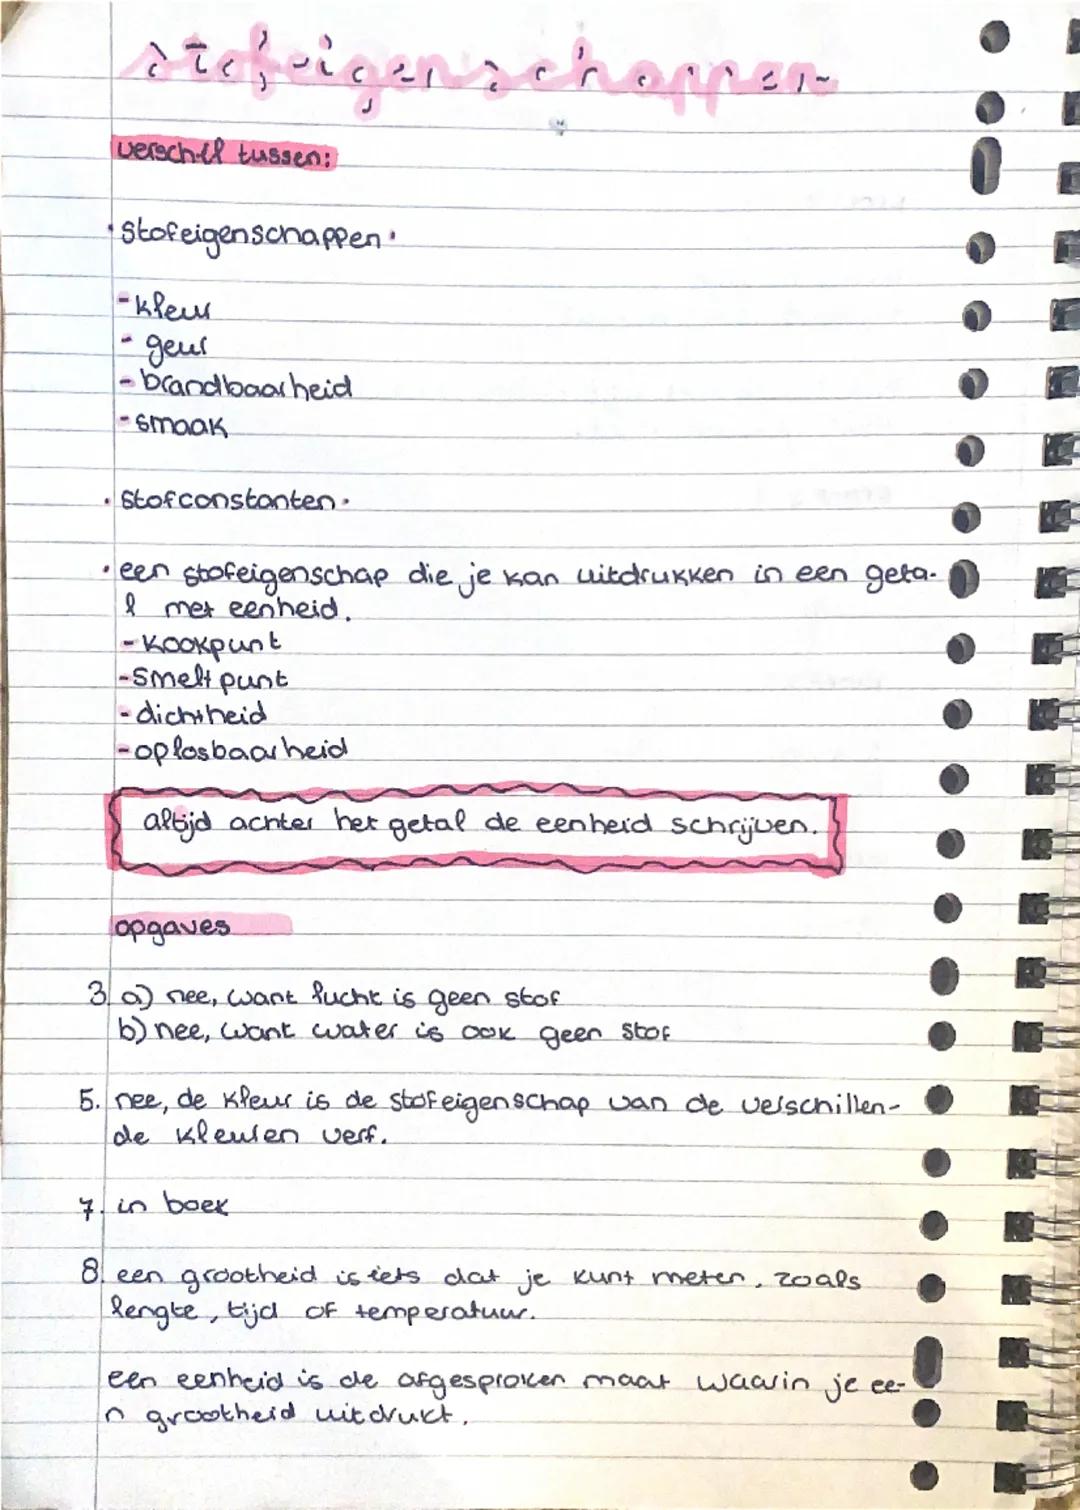 stofeigenschappen
verschil tussen:
• stofeigenschappen •
- kleur
- geur
- brandbaarheid
- smaak
• stofconstanten •
• een stofeigenschap die je kan uitdrukken in een geta-
l met eenheid.
- kookpunt
- smelt punt
- dichtheid
- oplosbaarheid
altijd achter het getal de eenheid schrijven.
opgaves
3 a) nee, want lucht is geen stof
b) nee, want water is ook geen stof
5. nee, de kleur is de stofeigenschap van de verschillen-
de kleuren verf.
7. in boek
8. een grootheid is iets dat je kunt meten, zoals
lengte, tijd of temperatuur.
een eenheid is de afgesproken maat waarin je ee-
n grootheid uitdrukt.